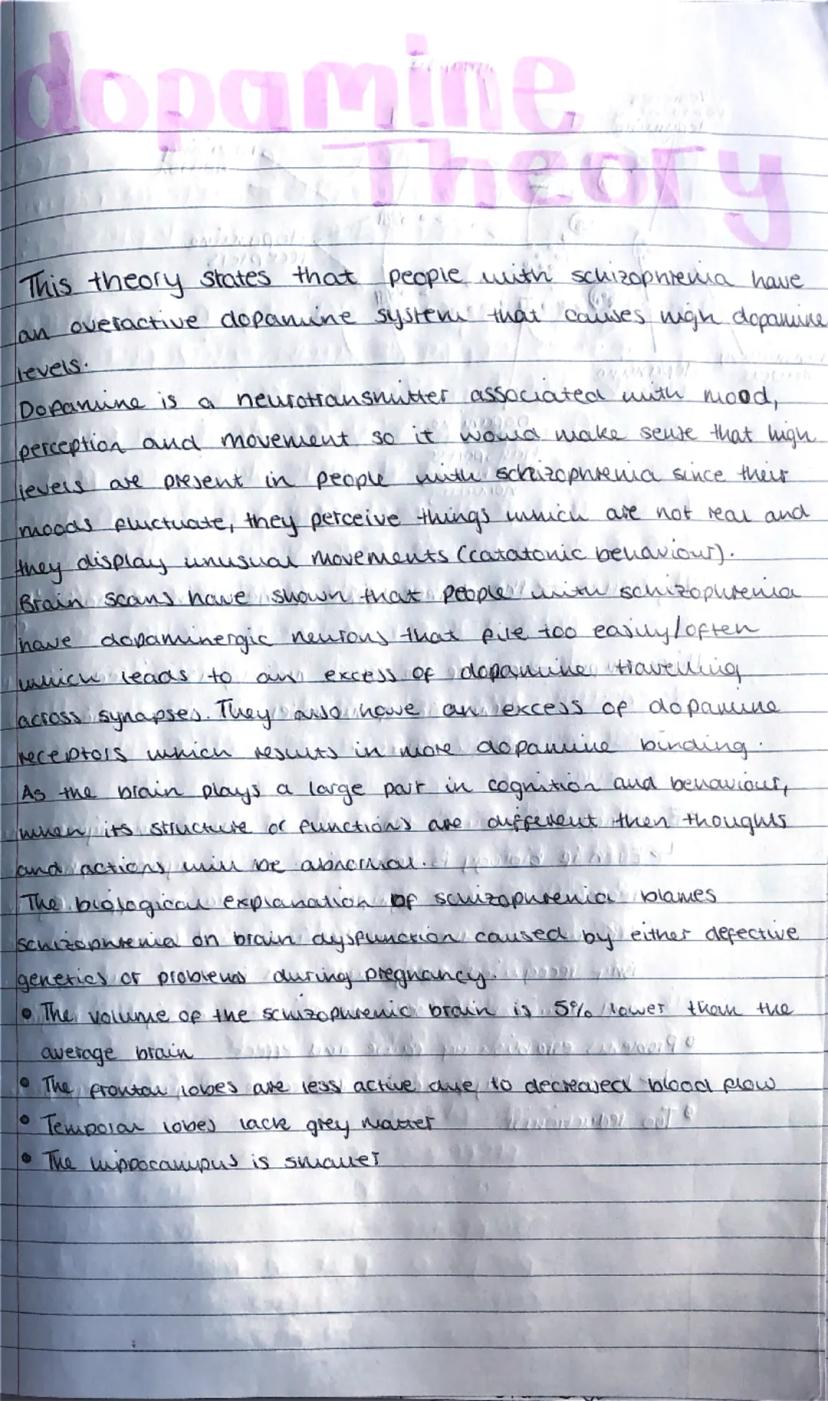 dopamine
Theory
This theory states that people with schizophrenia have
an overactive dopamine system that causes high dopamine
levels.
Dopamine is a neurotransmitter associated with mood,
perception and movement so it would make sense that high
levels are present in people with schizophrenia since their
moods fluctuate, they perceive things which are not real and
they display unusual movements (catatonic behaviour).
Brain scans have shown that people with schizophrenia
have dopaminergic neurons that fire too easily/often
which leads to an excess of dopamine travelling
across synapses. They also have an excess of dopamine
receptors which results in more dopamine binding.
As the brain plays a large part in cognition and behaviour,
when its structure or functions are different then thoughts
and actions will be abnormal.
The biological explanation of schizophrenia blames
schizophrenia on brain dysfunction caused by either defective
genetics or problems during pregnancy.
• The volume of the schizophrenic brain is 5% lower than the
average brain
• The frontal lobes are less active due to decreased blood flow
• Temporal lobes lack grey matter
• The hippocampus is smaller